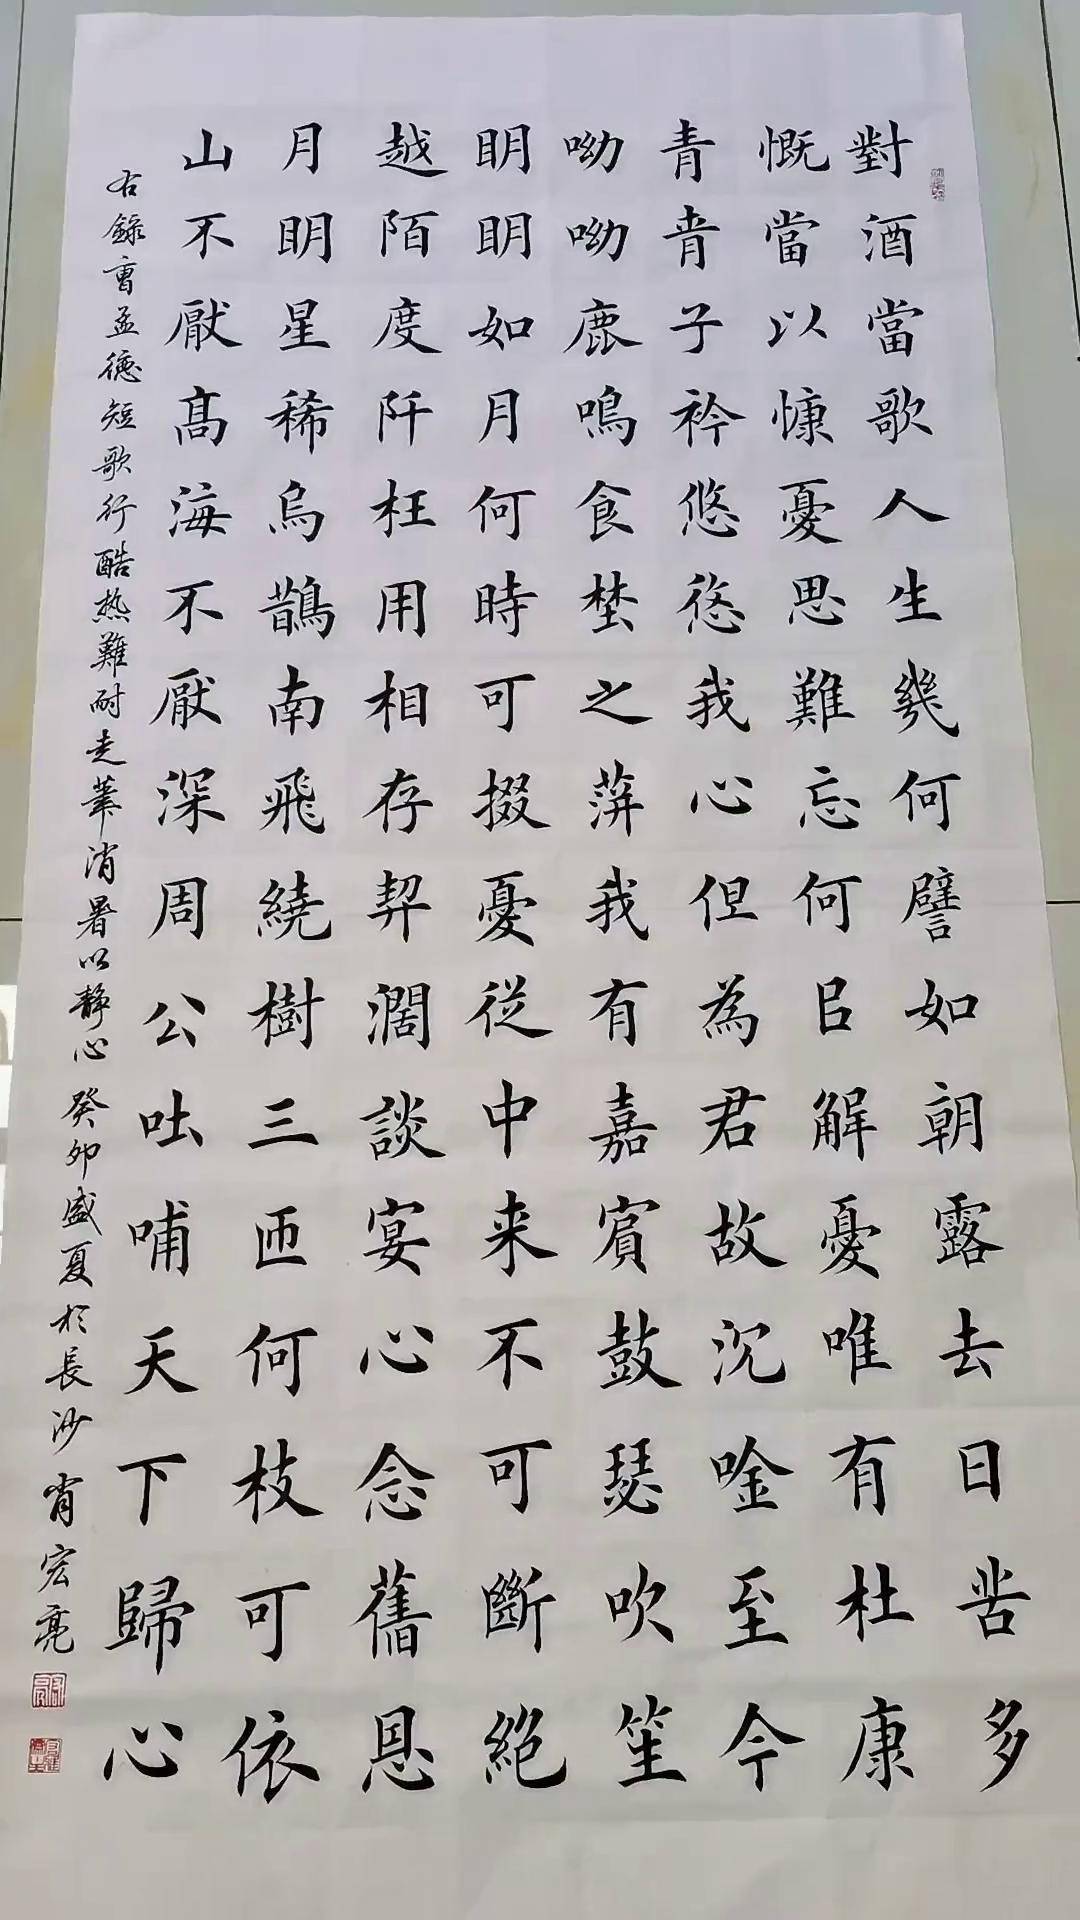 對酒當歌人生幾何譬如朝露去日苦多
慨當以慷憂思難忘何㠯解憂唯有杜康
青青子衿悠悠我心但為君故沉唫至今
呦呦鹿鳴食埜之蓱我有嘉賓鼓瑟吹笙
明明如月何時可掇憂從中来不可斷絕
越陌度阡枉用相存契濶談宴心念舊恩
月明星稀烏鵲南飛繞樹三匝何枝可依
山不厭高海不厭深周公吐哺天下歸心
右錄曹孟德短歌行酷热難耐走筆消暑以靜心癸卯盛夏於長沙肖宏亮